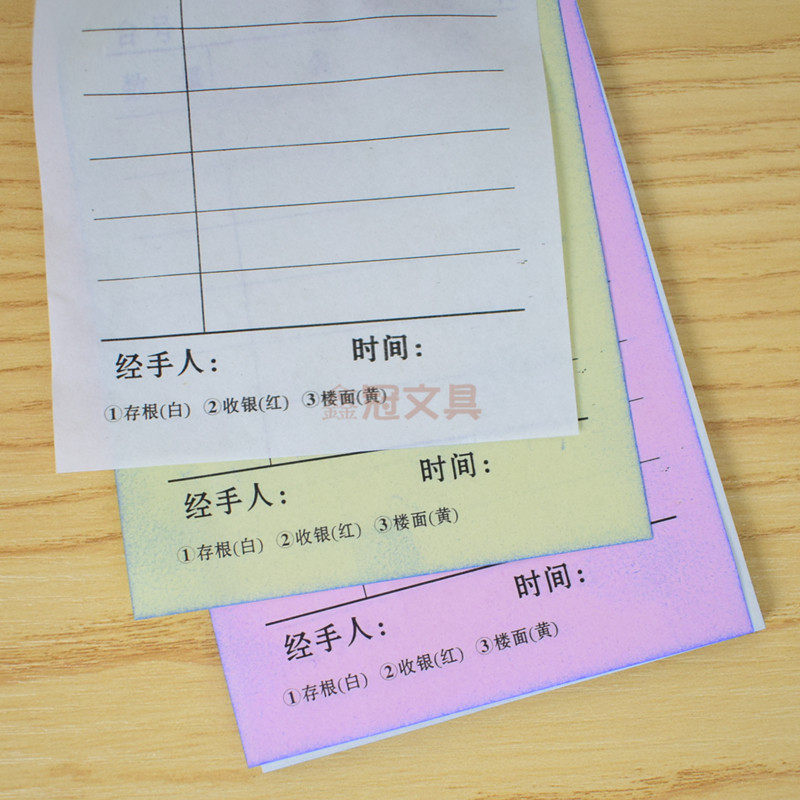 经手人： 时间：
①存根(白) ②收银(红) ③楼面(黄)
鑫冠文具
经手人： 时间：
①存根(白) ②收银(红) ③楼面(黄)
经手人： 时间：
①存根(白) ②收银(红) ③楼面(黄)